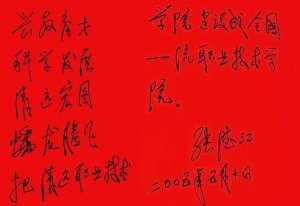 兴教育才
科学发展
清远宏图
蟠龙腾飞
把清远职业技术
学院建设成全国
一流职业技术学
院。
张德江
二〇〇五年五月十日